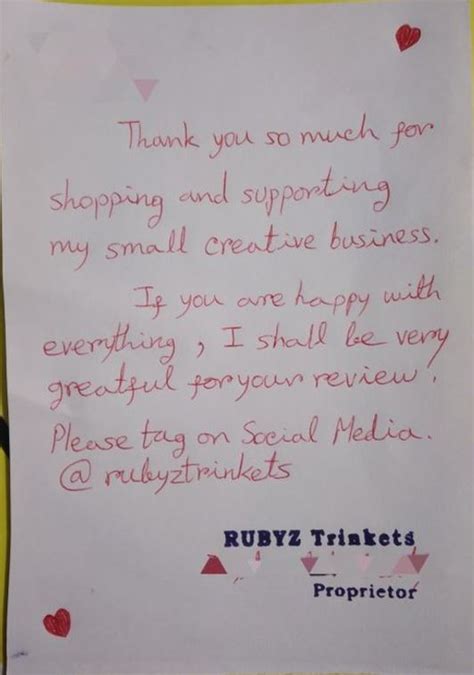 Thank you so much for
shopping and supporting
my small creative business.
If you are happy with
everything, I shall be very
greatful for your review!
Please tag on Social Media.
@rubyztrinkets
RUBYZ Trinkets
Proprietor